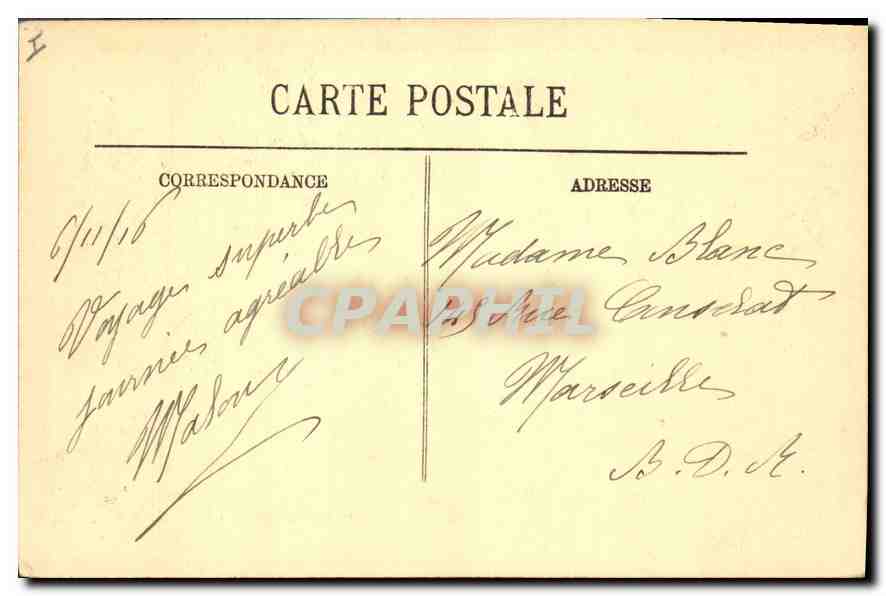 I
CARTE POSTALE
CORRESPONDANCE
6/11/16
Voyage superbe
journée agréable
ADRESSE
Madame Blanc
Rue
Marseille
B.D.R.
CPAPHIL